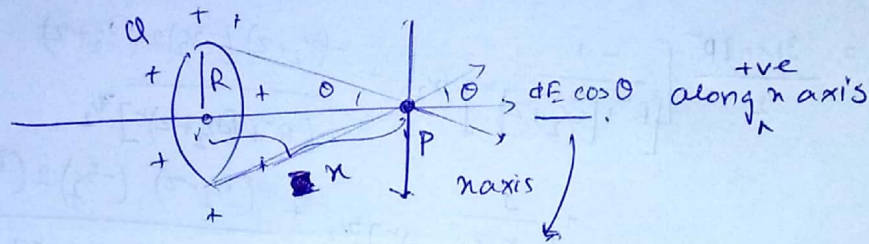 Q
+ +
+ R + θ θ dE cosθ +ve along x axis
P
+ + x x axis
+